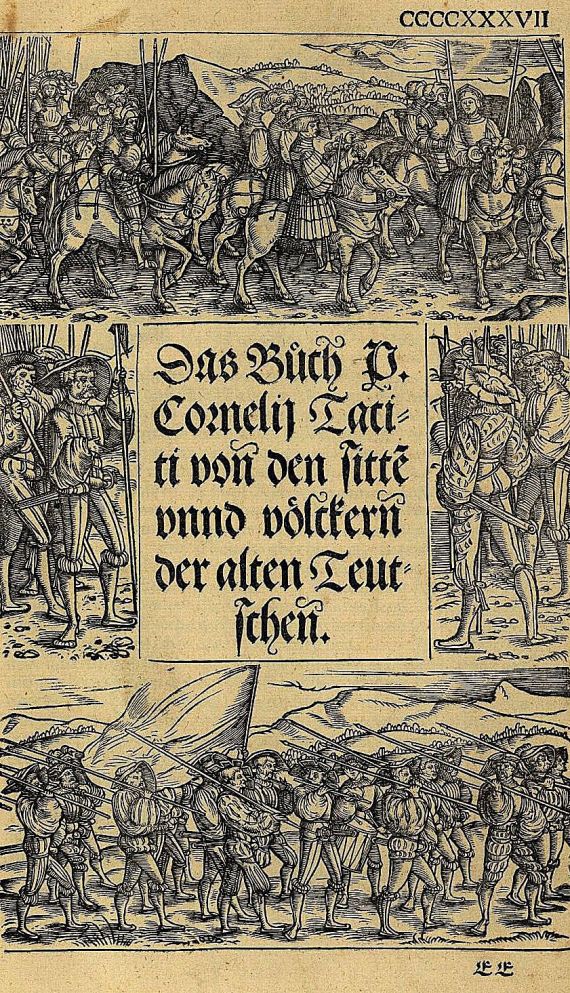 CCCCXXXVII
Das Bůch P.
Cornelij Taci⸗
ti von den sittẽ
vnnd vôlckern
der alten Teut⸗
schen.
EE